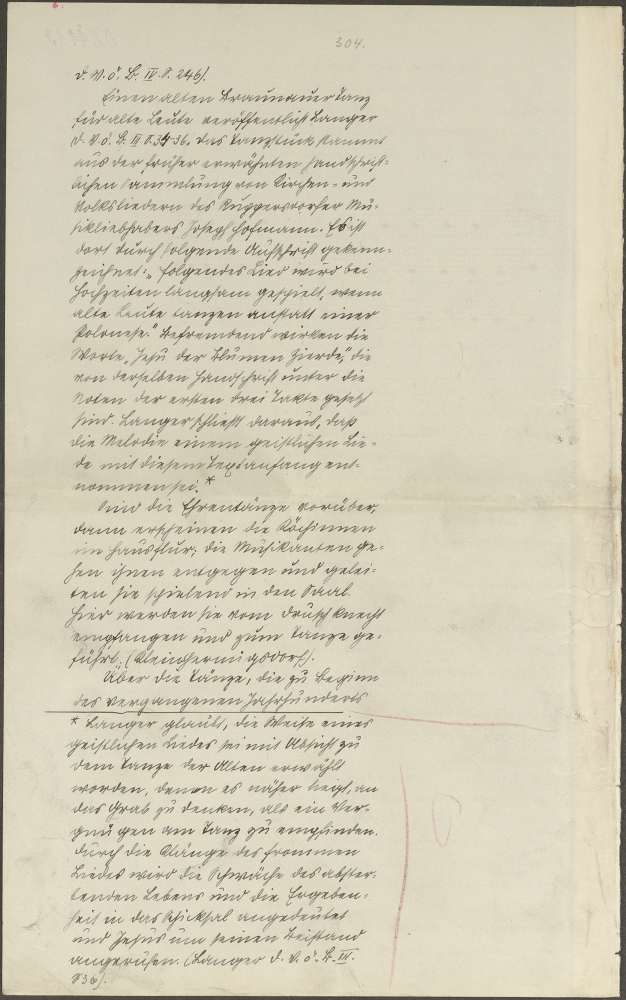 304.
d. V. ö. B. IV. S. 246).
Einen alten Braunauer Tanz
für alte Leute veröffentlicht Langer
(d. V. ö. B. III S. 34-36. Das Tanzstück stammt
aus der früher erwähnten handschrift-
lichen Sammlung von Kirchen- und
Volksliedern des Ruppersdorfer Mu-
sikliebhabers Joseph Hofmann. Es ist
dort durch folgende Aufschrift gekenn-
zeichnet: „Folgendes Lied wird bei
Hochzeiten langsam gespielt, wenn
alte Leute tanzen anstatt einer
Polonese." Befremdend wirken die
Worte „Jesu der Blumen Zierde", die
von derselben Handschrift unter die
Noten der ersten drei Takte gesetzt
sind. Langer schließt daraus, daß
die Melodie einem geistlichen Lie-
de mit diesem Textanfang ent-
nommen sei. *
Sind die Ehrentänze vorüber,
dann erscheinen die Köchinnen
im Hausflur; die Musikanten ge-
hen ihnen entgegen und gelei-
ten sie spielend in den Saal.
Hier werden sie vom Druschknecht
empfangen und zum Tanze ge-
führt. (Kleinhermigsdorf).
Über die Tänze, die zu Beginn
des vergangenen Jahrhunderts
* Langer glaubt, die Weise eines
geistlichen Liedes sei mit Absicht zu
dem Tanze der Alten erwählt
worden, denen es näher liegt, an
das Grab zu denken, als ein Ver-
gnügen am Tanz zu empfinden.
Durch die Klänge des frommen
Liedes wird die Schwäche des abster-
benden Lebens und die Ergeben-
heit in das Schicksal angedeutet
und Jesus um seinen Beistand
angerufen. (Langer d. V. ö. B. III.
S 36).